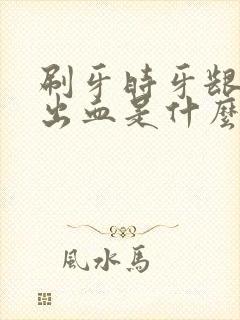 刷牙時牙齦
出血是什麼
風水馬